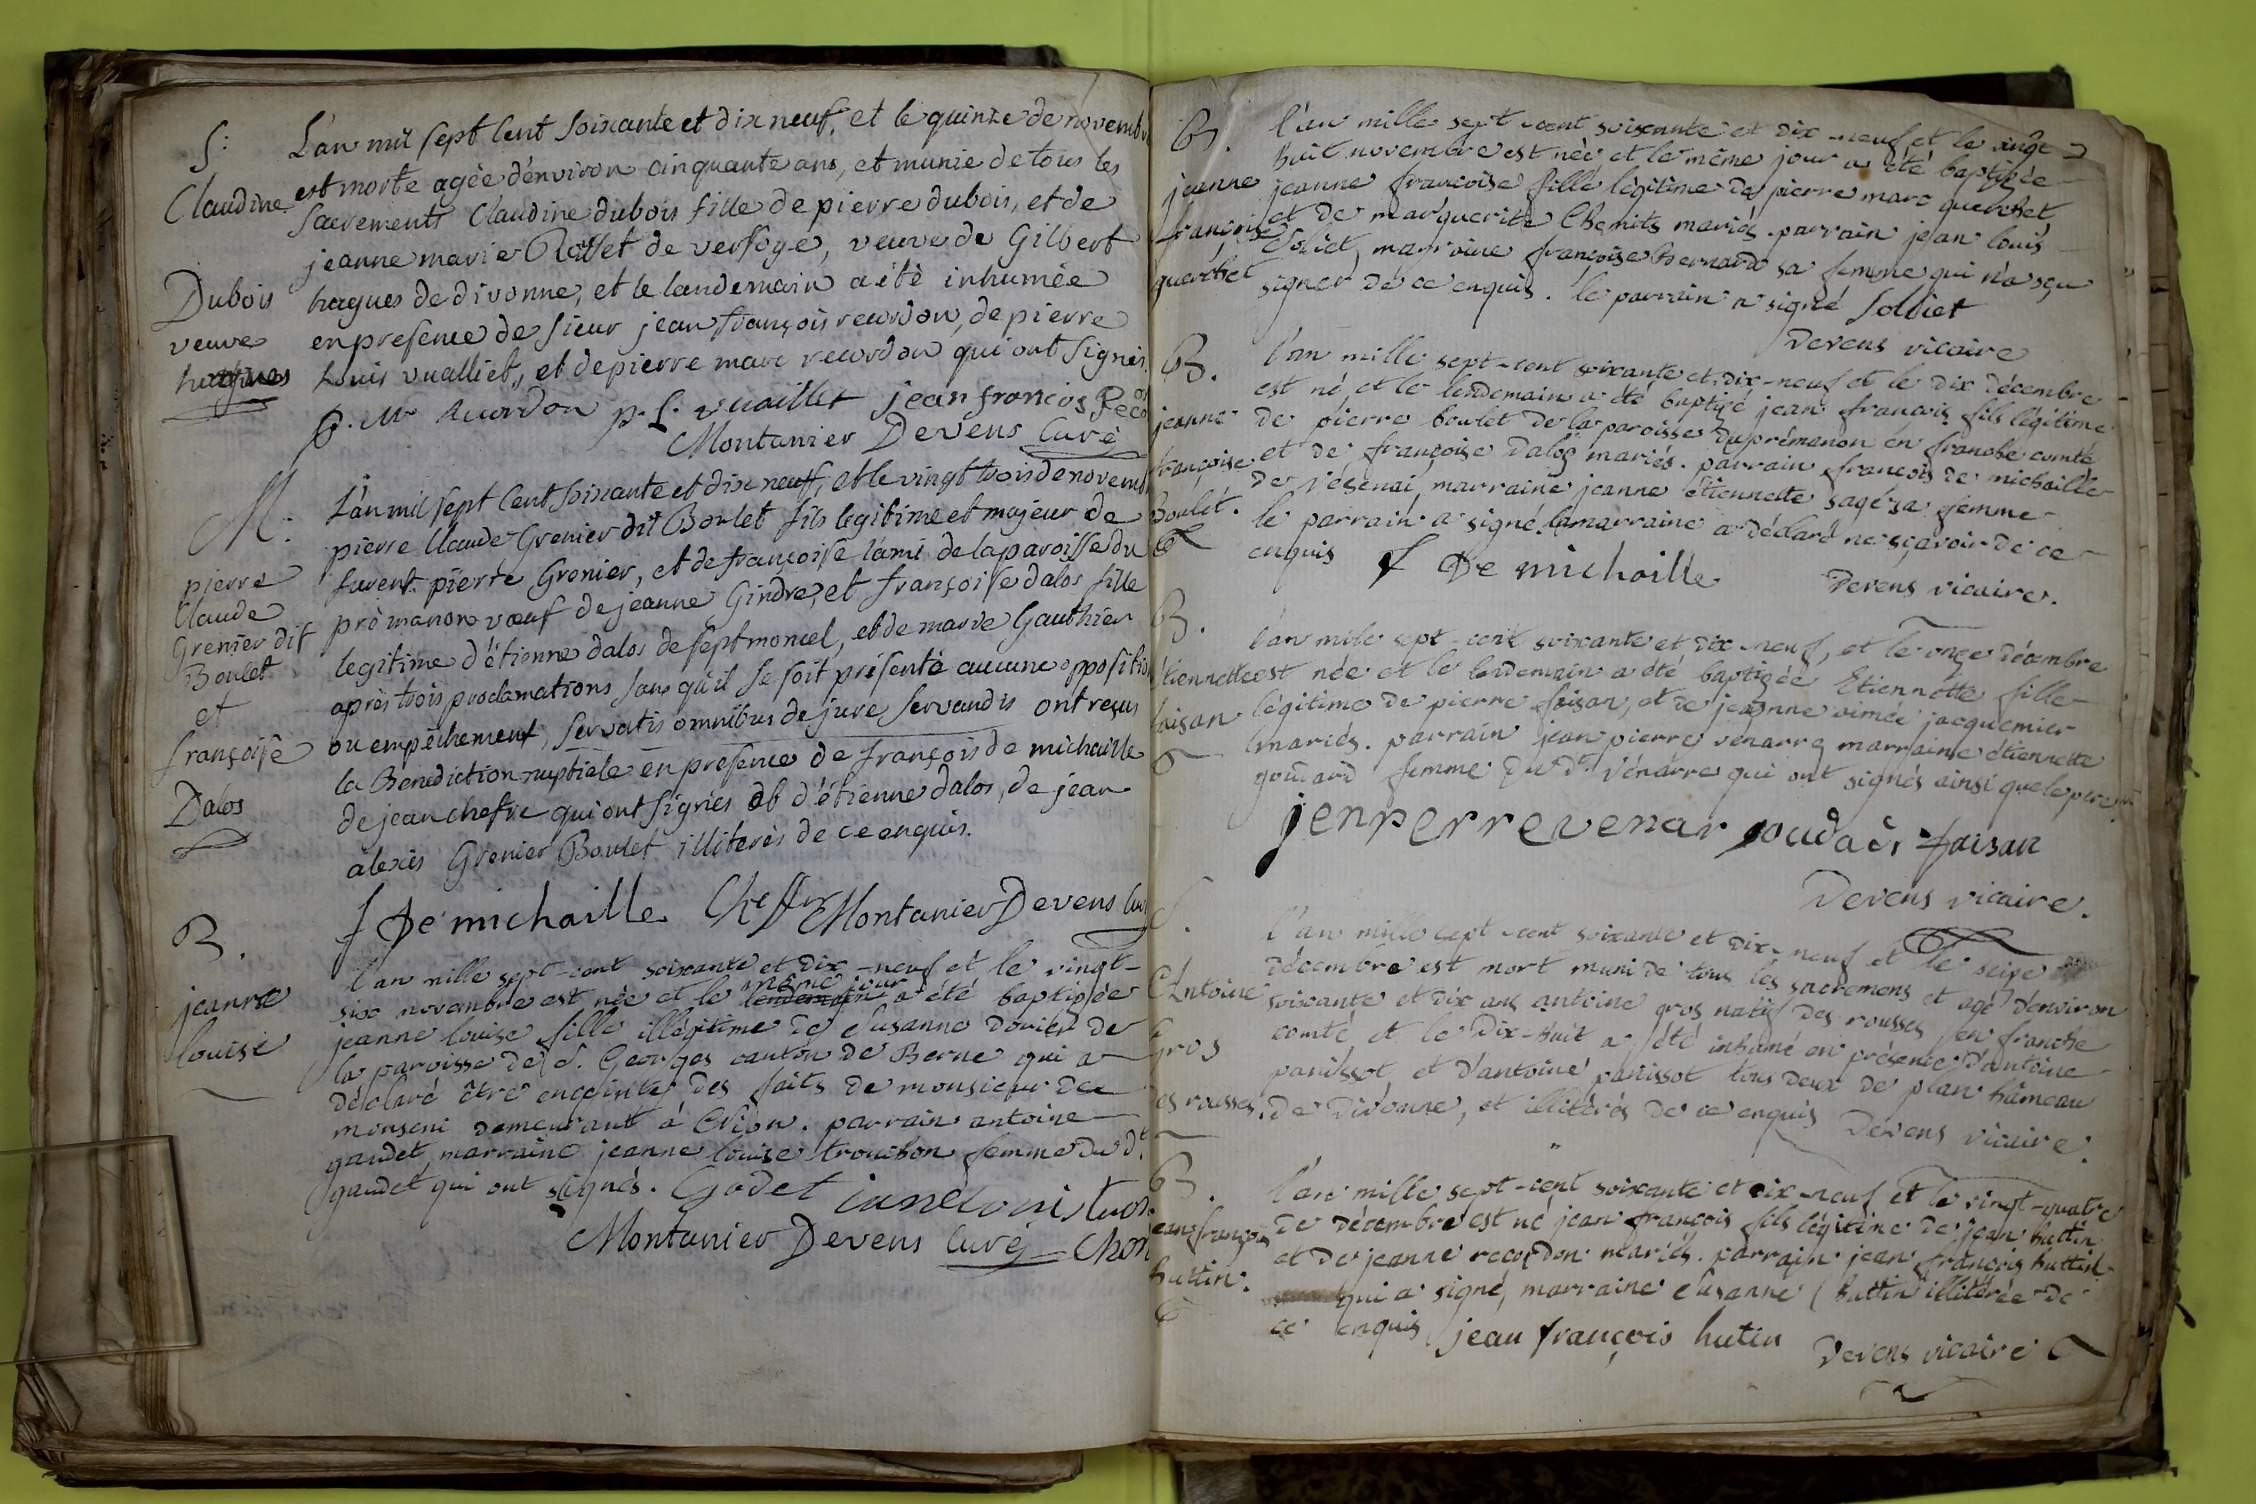 S:
Claudine
Dubois
veuve
hugues
L'an mil sept cent soixante et dix neuf, et le quinze de novembre
est morte agée d'environ cinquante ans, et munie de tous les
sacrements Claudine dubois fille de pierre dubois, et de
jeanne marie Rosset de versoye, veuve de Gilbert
hagues de divonne, et le landemain a été inhumée
en presence de sieur jean françois recordon, de pierre
Louis vualliet, et de pierre marc recordon qui ont signés
P. M. Recordon p. L. vuaillet jean francois Reco
Montanier Devens Curé
M:
pierre
Claude
Grenier dit
Boulet
et
françoise
Dalos
L'an mil sept cent soixante et dix neuff, et le vingt trois de novemb
pierre Claude Grenier dit Boulet fils legitime et majeur de
furent pierre Grenier, et de françoise lami de la paroisse du
prémanon vœuf de jeanne Gindre, et françoise dalos fille
legitime d'étienne dalos de septmoncel, et de marie Gauthier
après trois proclamations sans qu'il se soit présenté aucune oppositio
ou empêchement, servatis omnibus de jure servandis ont reçus
la Benediction nuptiale en presence de françois de michaille
de jean chefre qui ont signés et d'étienne dalos, de jean
alexis Grenier Boulet illiterés de ce enquis.
f De michaille Cheffre Montanier Devens Cur
B.
jeanne
louise
l'an mille sept-cent soixante et dix-neuf et le vingt-
six novembre est née et le même jour a été baptisée
jeanne louise fille illégitime de Susanne Dovien de
la paroisse de St. Georges canton de Berne qui a
déclaré être enceinte des faits de monsieur de
monseni demeurant à Nion. parrain antoine
gaudet, marraine jeanne louise trouchon femme du dt.
gaudet qui ont signés. Godet jane Loui truo
Montanier Devens Curé chon
B.
jeanne
françoise
querchet
l'an mille sept-cent soixante et dix-neuf et le vingt-
huit novembre est née et le même jour a été baptisée
jeanne françoise fille légitime de pierre marc querchet
et de marguerite Chemits mariés. parrain jean louis
Soldiet, marraine françoise Bernard sa femme qui n'a sçu
signer de ce enquis. le parrain a signé Soldiet
Devens vicaire
B.
jeanne
françoise
Boulet.
l'an mille sept-cent soixante et dix-neuf et le dix décembre
est né, et le lendemain a été baptisé jean françois fils légitime
de pierre boulet de la paroisse du prémanon en franche comté
et de françoise Dalos mariés. parrain françois de michaille
de vésenai, marraine jeanne étiennette sage sa femme
le parrain a signé. la marraine a déclaré ne sçavoir de ce
enquis f De michaille
Devens vicaire.
B.
étiennette
faisan
l'an mille sept-cent soixante et dix-neuf, et le onze décembre
est née et le lendemain a été baptisée Etiennette fille
légitime de pierre faisan, et de jeanne aimée jacquemier
mariés. parrain jean pierre vénarre marraine étiennette
goudard femme du dt. vénarre qui ont signés ainsi que le pere
jenperrevenar goudaer faisan
Devens vicaire.
S.
Antoine
Gros
des rousses.
l'an mille sept-cent soixante et dix-neuf et le seize
décembre est mort muni de tous les sacremens et agé d'environ
soixante et dix ans antoine gros natif des rousses en franche
comté, et le dix-huit a été inhumé en présence d'antoine
panissot et d'antoine panissot tous deux de plan hâmeau
de Divonne, et illitérés de ce enquis Devens vicaire.
B.
jean françois
huttin.
l'an mille sept-cent soixante et dix-neuf et le vingt-quatre
de décembre est né jean françois fils légitime de jean huttin
et de jeanne recordon mariés. parrain jean françois huttin
qui a signé, marraine Susanne huttin illitérée de
ce enquis jean françois hutin
Devens vicaire